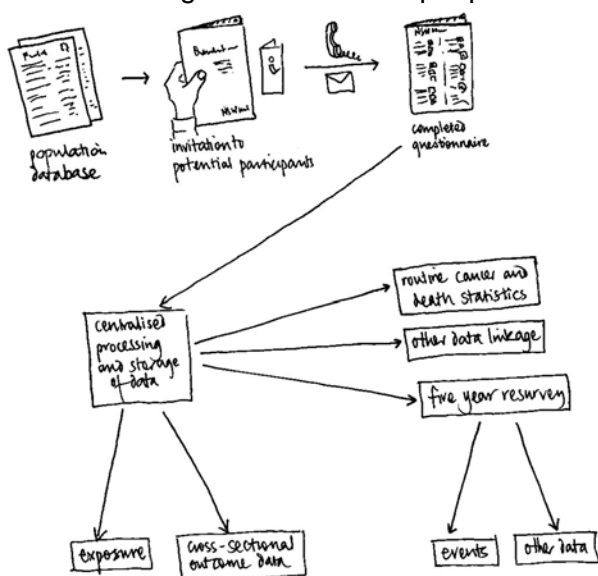 population
database
invitation to
potential participants
completed
questionnaire
centralised
processing
and storage
of data
routine cancer and
death statistics
other data linkage
five year resurvey
exposure
cross-sectional
outcome data
events
other data